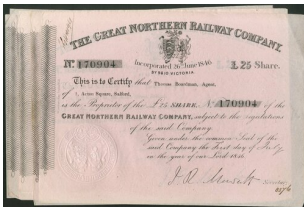 THE GREAT NORTHERN RAILWAY COMPANY.
Incorporated 26 June 1846
BY 9&10 VICTORIA
No. 170904
£ 25 Share.
This is to Certify that Thomas Boardman, Agent,
of 1, Acton Square, Salford,
is the Proprietor of the £25 SHARE, No. 170904 of the
GREAT NORTHERN RAILWAY COMPANY, subject to the regulations
of the said Company.
Given under the common Seal of the
said Company the First day of July
in the year of our Lord
Secretary